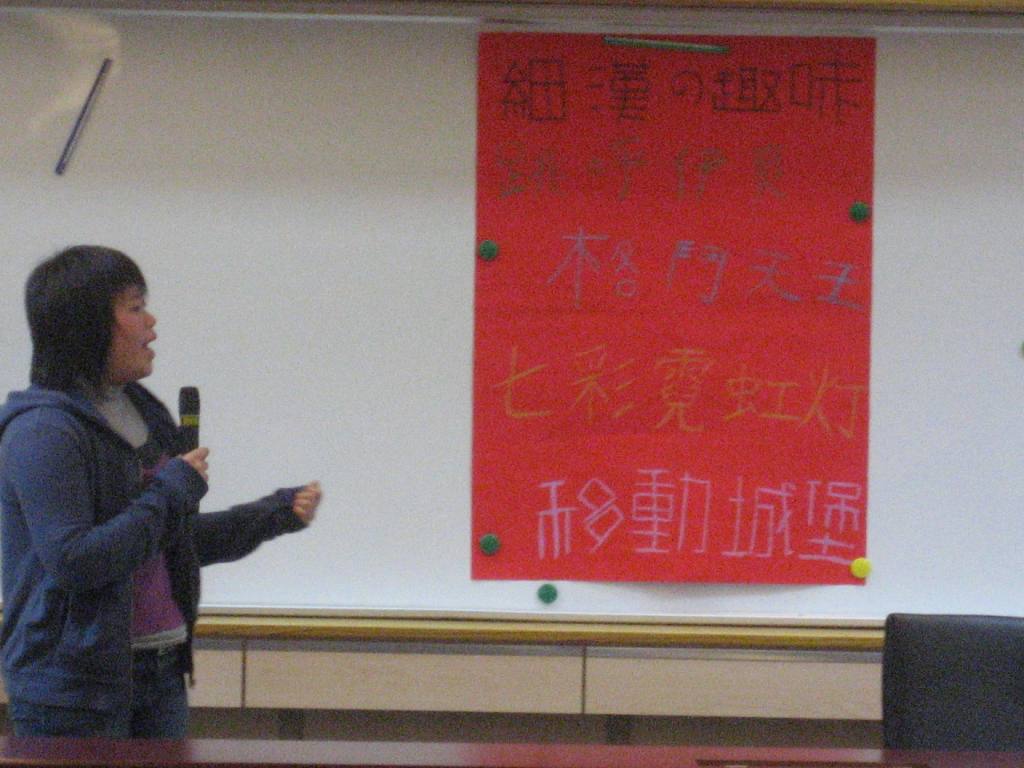 細漢の趣味
跳呼伊爽
格鬥天王
七彩霓虹灯
移動城堡